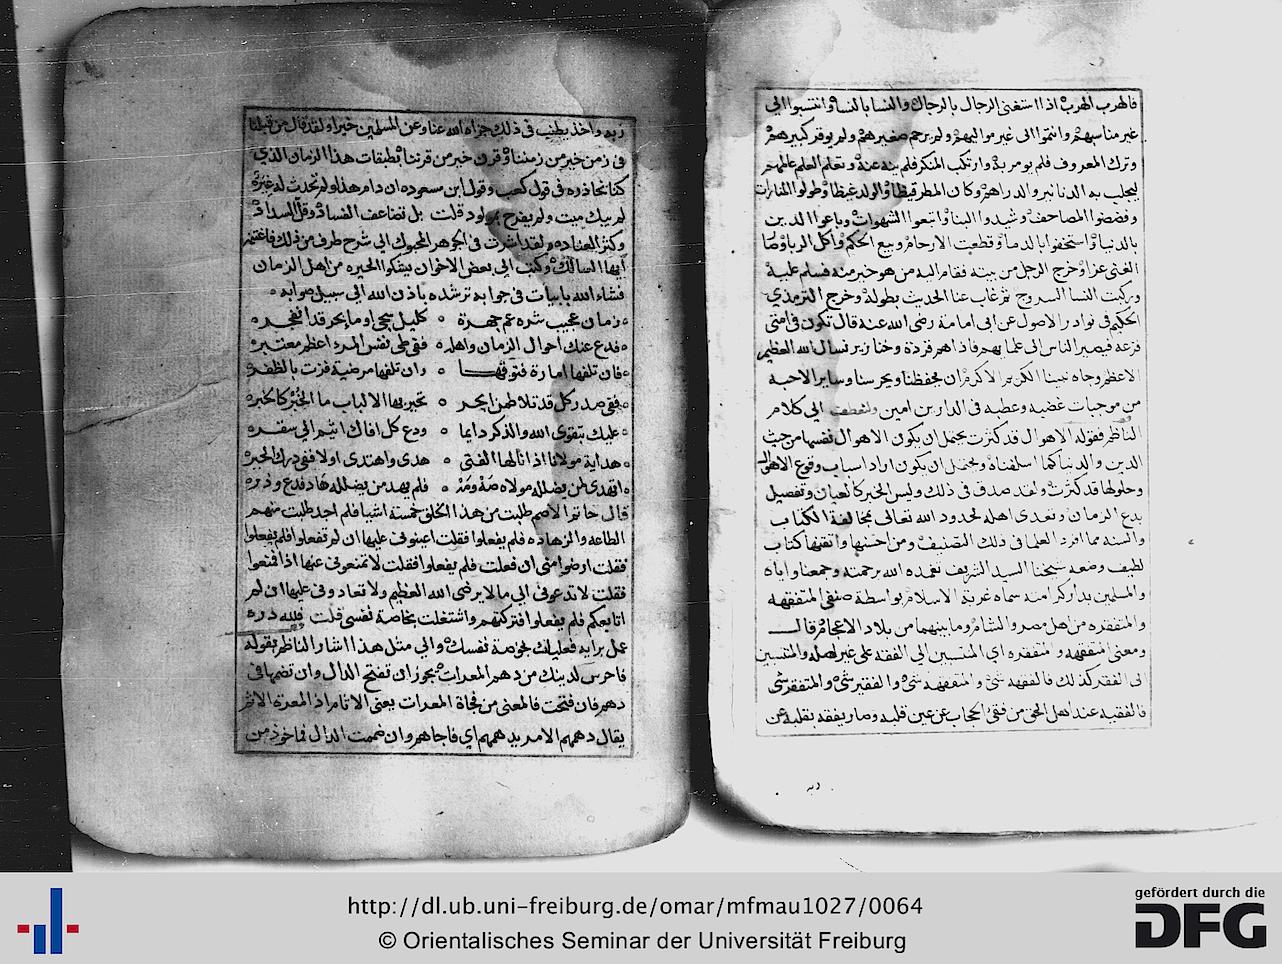 فالهرب الهرب اذا استغنى الرجال بالرجال والنسا بالنسا وانتسبوا الى
غير مناسبهم وانتموا الى غير مواليهم ولم يرحم صغيرهم ولم يوقر كبيرهم
وترك المعروف فلم يومر به وارتكب المنكر فلم ينه عنه وتعلم العلم عالمهم
ليجلب به الدنانير والدراهم وكان المطر قيظا والولد غيظا وطولوا المنارات
وفضضوا المصاحف وشيدوا البنا واتبعوا الشهوات وباعوا الدين
بالدنيا واستخفوا بالدما وقطعت الارحام وبيع الحكم واكل الربا وصا
الغنى عزا وخرج الرجل من بيته فقام اليه من هو خير منه فسلم عليه
وركبت النسا السروج ثم غاب عنا الحديث بطوله وخرج الترمذي
الحكيم في نوادر الاصول عن ابي امامة رضى الله عنه قال تكون في امتى
فزعه فيصير الناس الى علمايهم فاذا هم قردة وخنازير نسال الله العظيم
الاعظم وجاه نبينا الكريم الاكرم ان يحفظنا ويحرسنا وساير الاحبه
من موجبات غضبه وعطبه في الدارين امين الى كلام
الناظم فقوله الاهوال قد كثرت يحتمل ان يكون الاهوال نفسها من حيث
الدين والدنيا كما اسلفناه ويحتمل ان يكون اراد اسباب وقوع الاهوال
وحلولها قد كثرت ولقد صدق في ذلك وليس الخبر كالعيان وتفصيل
بدع الزمان وتعدى اهله لحدود الله تعالى بمخالفة الكتاب
والسنه مما افرد العلما في ذلك التصنيف ومن احسنها واتقنها كتاب
لطيف وضعه شيخنا السيد الشريف تغمده الله برحمته وجمعنا واياه
والمسلمين بدار كرامته سماه غربة الاسلام بواسطة صنفي المتفقهه
والمتفقره من اهل مصر والشام وما يليهما من بلاد الاعجام قال
ومعنى المتفقهه والمتفقره اي المنتسبين الى الفقه على غير اهله والمنتسبين
الى الفقر كذلك فالفقيه شى والمتفقهه شى والفقير شى والمتفقر شى
فالفقيه عند اهل الحق من فقئ الحجاب عن عين قلبه وصار يفقه بقلبه عن
ربه
ربه واخذ يطنب في ذلك جزاه الله عنا وعن المسلمين خيرا ولقد قال من قبلنا
في زمن خير من زمننا وقرن خير من قرننا بطبقات هذا الزمان الذي
كنا نحاذره في قول كعب وقول ابن مسعود ان دام هذا ولم تحدث له غيرة
لم يبك ميت ولم يفرح بمولود قلت بل تضاعف الفساد وقل السداد
وكثر العناد ولقد اشرت في الجوهر المحبوك الى شرح طرف من ذلك فاغتنم
ايها السالك وكتب الى بعض الاخوان يشكوا الحيره من اهل الزمان
فشاء الله بابيات في جوابه ترشده باذن الله الى سبيل صوابه
زمان عجيب شره عم جهرة كليل سجى او ما بحر قد انفجر
فدع عنك احوال الزمان واهله ففي طى نفس المرء اعظم معتبر
فان تلفها امارة فتوقها وان تلفها مرضية فزت بالظفر
ففي صدر كل قد تلاطمن ابحر تحير بها الالباب ما الخبر كالخبر
عليك بتقوى الله والذكر دايما ودع كل افاك اثيم الى سقر
هداية مولانا اذا نالها الفتى هدى واهتدى اولا ففي درك الخبر
اتهدى لمن يضلله مولاه صه ومه فلم يهد من يضلله هاد فدع وذر
قال حاتم الاصم طلبت من هذا الخلق خمسه اشيا فلم اجد طلبت منهم
الطاعه والزهاده فلم يفعلوا فقلت اعينوني عليها ان لم تفعلوا فلم يفعلوا
فقلت ارضوا منى ان فعلت فلم يفعلوا فقلت لا تمنعوني عنها اذا فمنعوا
فقلت لا تدعوني الى ما لا يرضى الله العظيم ولا تعادوني عليها ان لم
اتابعكم فلم يفعلوا فتركتهم واشتغلت بخاصة نفسى قلت فلله دره
عمل برايه فعليك بخوصة نفسك والى مثل هذا اشار الناظم بقوله
فاحرس لدينك من دهم المعرات يجوز ان تفتح الدال وان تضمها في
دهم فان فتحت فالمعنى من فجاة المعرات يعنى الاثام اذ المعره الاثم
يقال دهمهم الامر يدهمهم اي فاجاهم وان ضممت الدال فماخوذ من
http://dl.ub.uni-freiburg.de/omar/mfmau1027/0064
© Orientalisches Seminar der Universität Freiburg
gefördert durch die
DFG